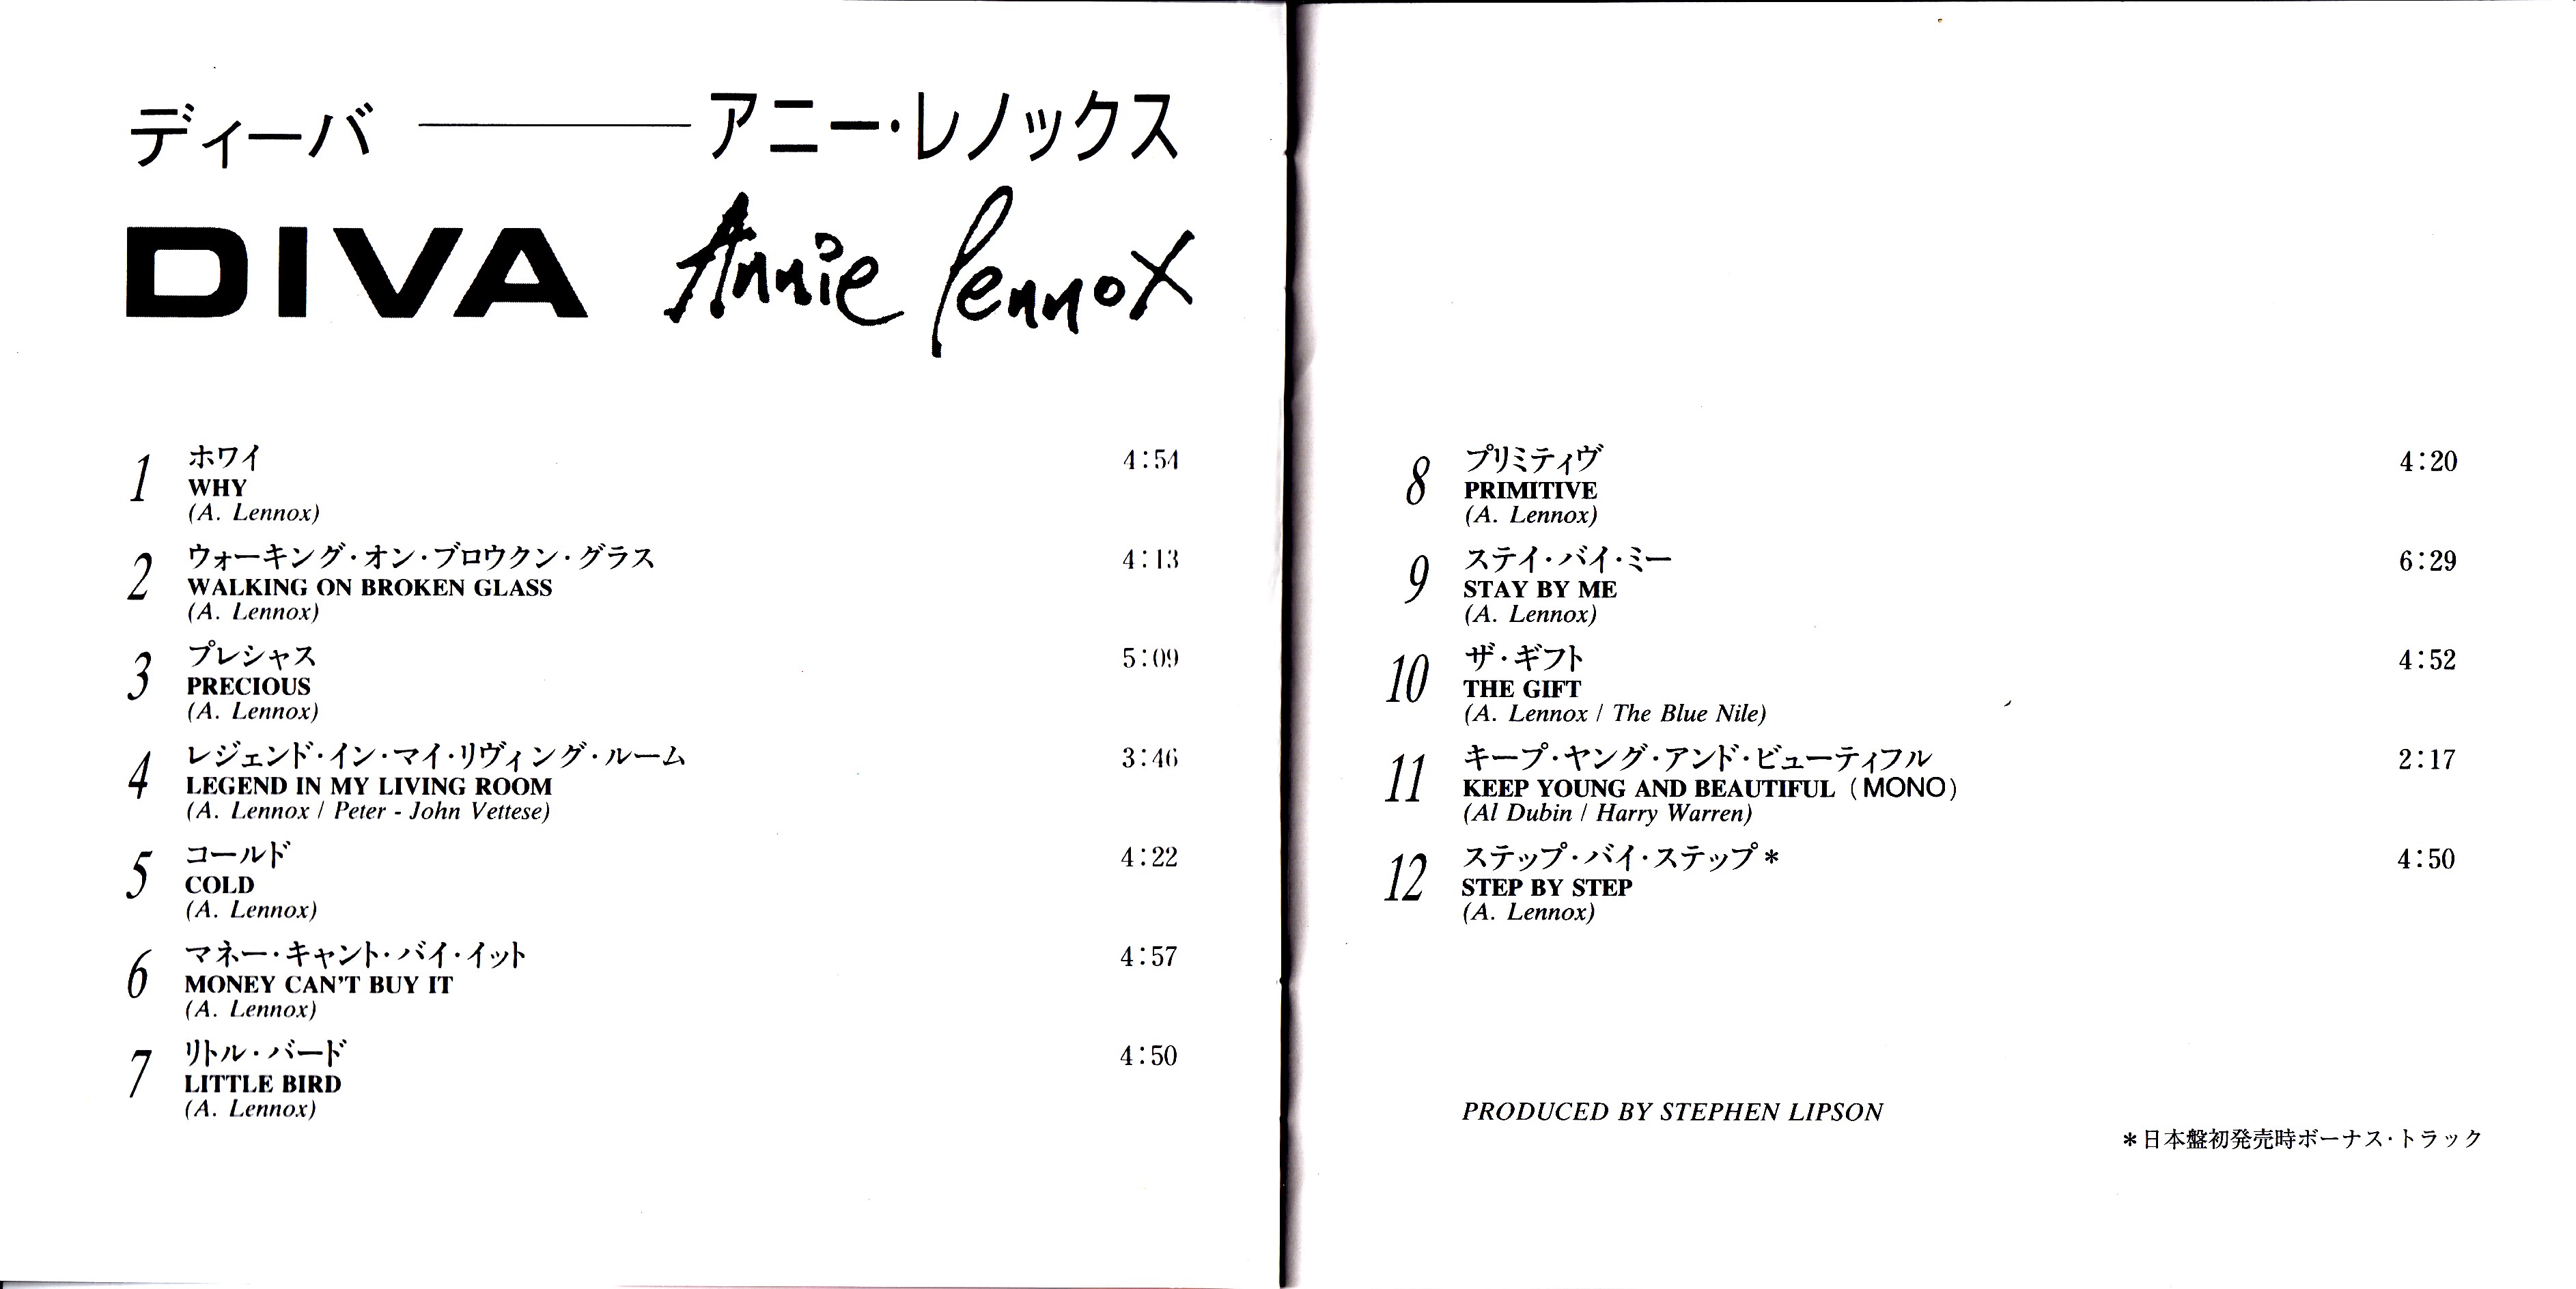 ディーバ ―――― アニー・レノックス
DIVA Annie Lennox
1 ホワイ 4:54
WHY
(A. Lennox)
2 ウォーキング・オン・ブロウクン・グラス 4:13
WALKING ON BROKEN GLASS
(A. Lennox)
3 プレシャス 5:09
PRECIOUS
(A. Lennox)
4 レジェンド・イン・マイ・リヴィング・ルーム 3:46
LEGEND IN MY LIVING ROOM
(A. Lennox / Peter - John Vettese)
5 コールド 4:22
COLD
(A. Lennox)
6 マネー・キャント・バイ・イット 4:57
MONEY CAN'T BUY IT
(A. Lennox)
7 リトル・バード 4:50
LITTLE BIRD
(A. Lennox)
8 プリミティヴ 4:20
PRIMITIVE
(A. Lennox)
9 ステイ・バイ・ミー 6:29
STAY BY ME
(A. Lennox)
10 ザ・ギフト 4:52
THE GIFT
(A. Lennox / The Blue Nile)
11 キープ・ヤング・アンド・ビューティフル 2:17
KEEP YOUNG AND BEAUTIFUL (MONO)
(Al Dubin / Harry Warren)
12 ステップ・バイ・ステップ* 4:50
STEP BY STEP
(A. Lennox)
PRODUCED BY STEPHEN LIPSON
*日本盤初発売時ボーナス・トラック